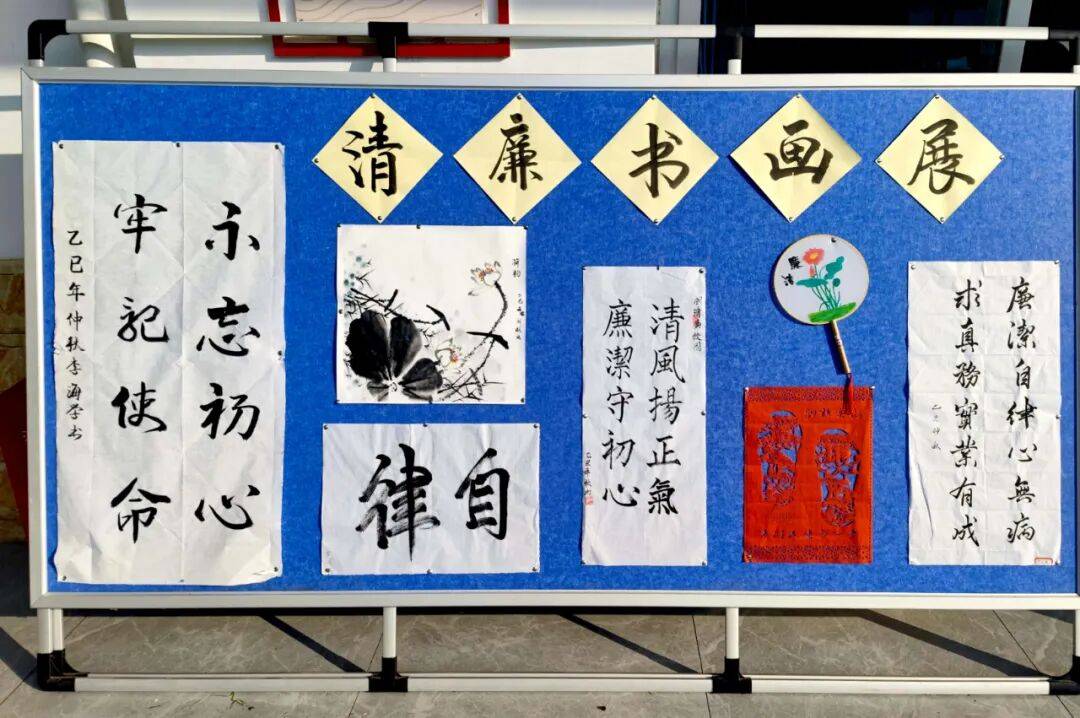 清廉书画展
不忘初心
牢记使命
乙巳年仲秋李海学书
荷韵
自律
清風揚正氣
廉潔守初心
廉洁
廉潔自律心無病
求真務實業有成
乙巳仲秋